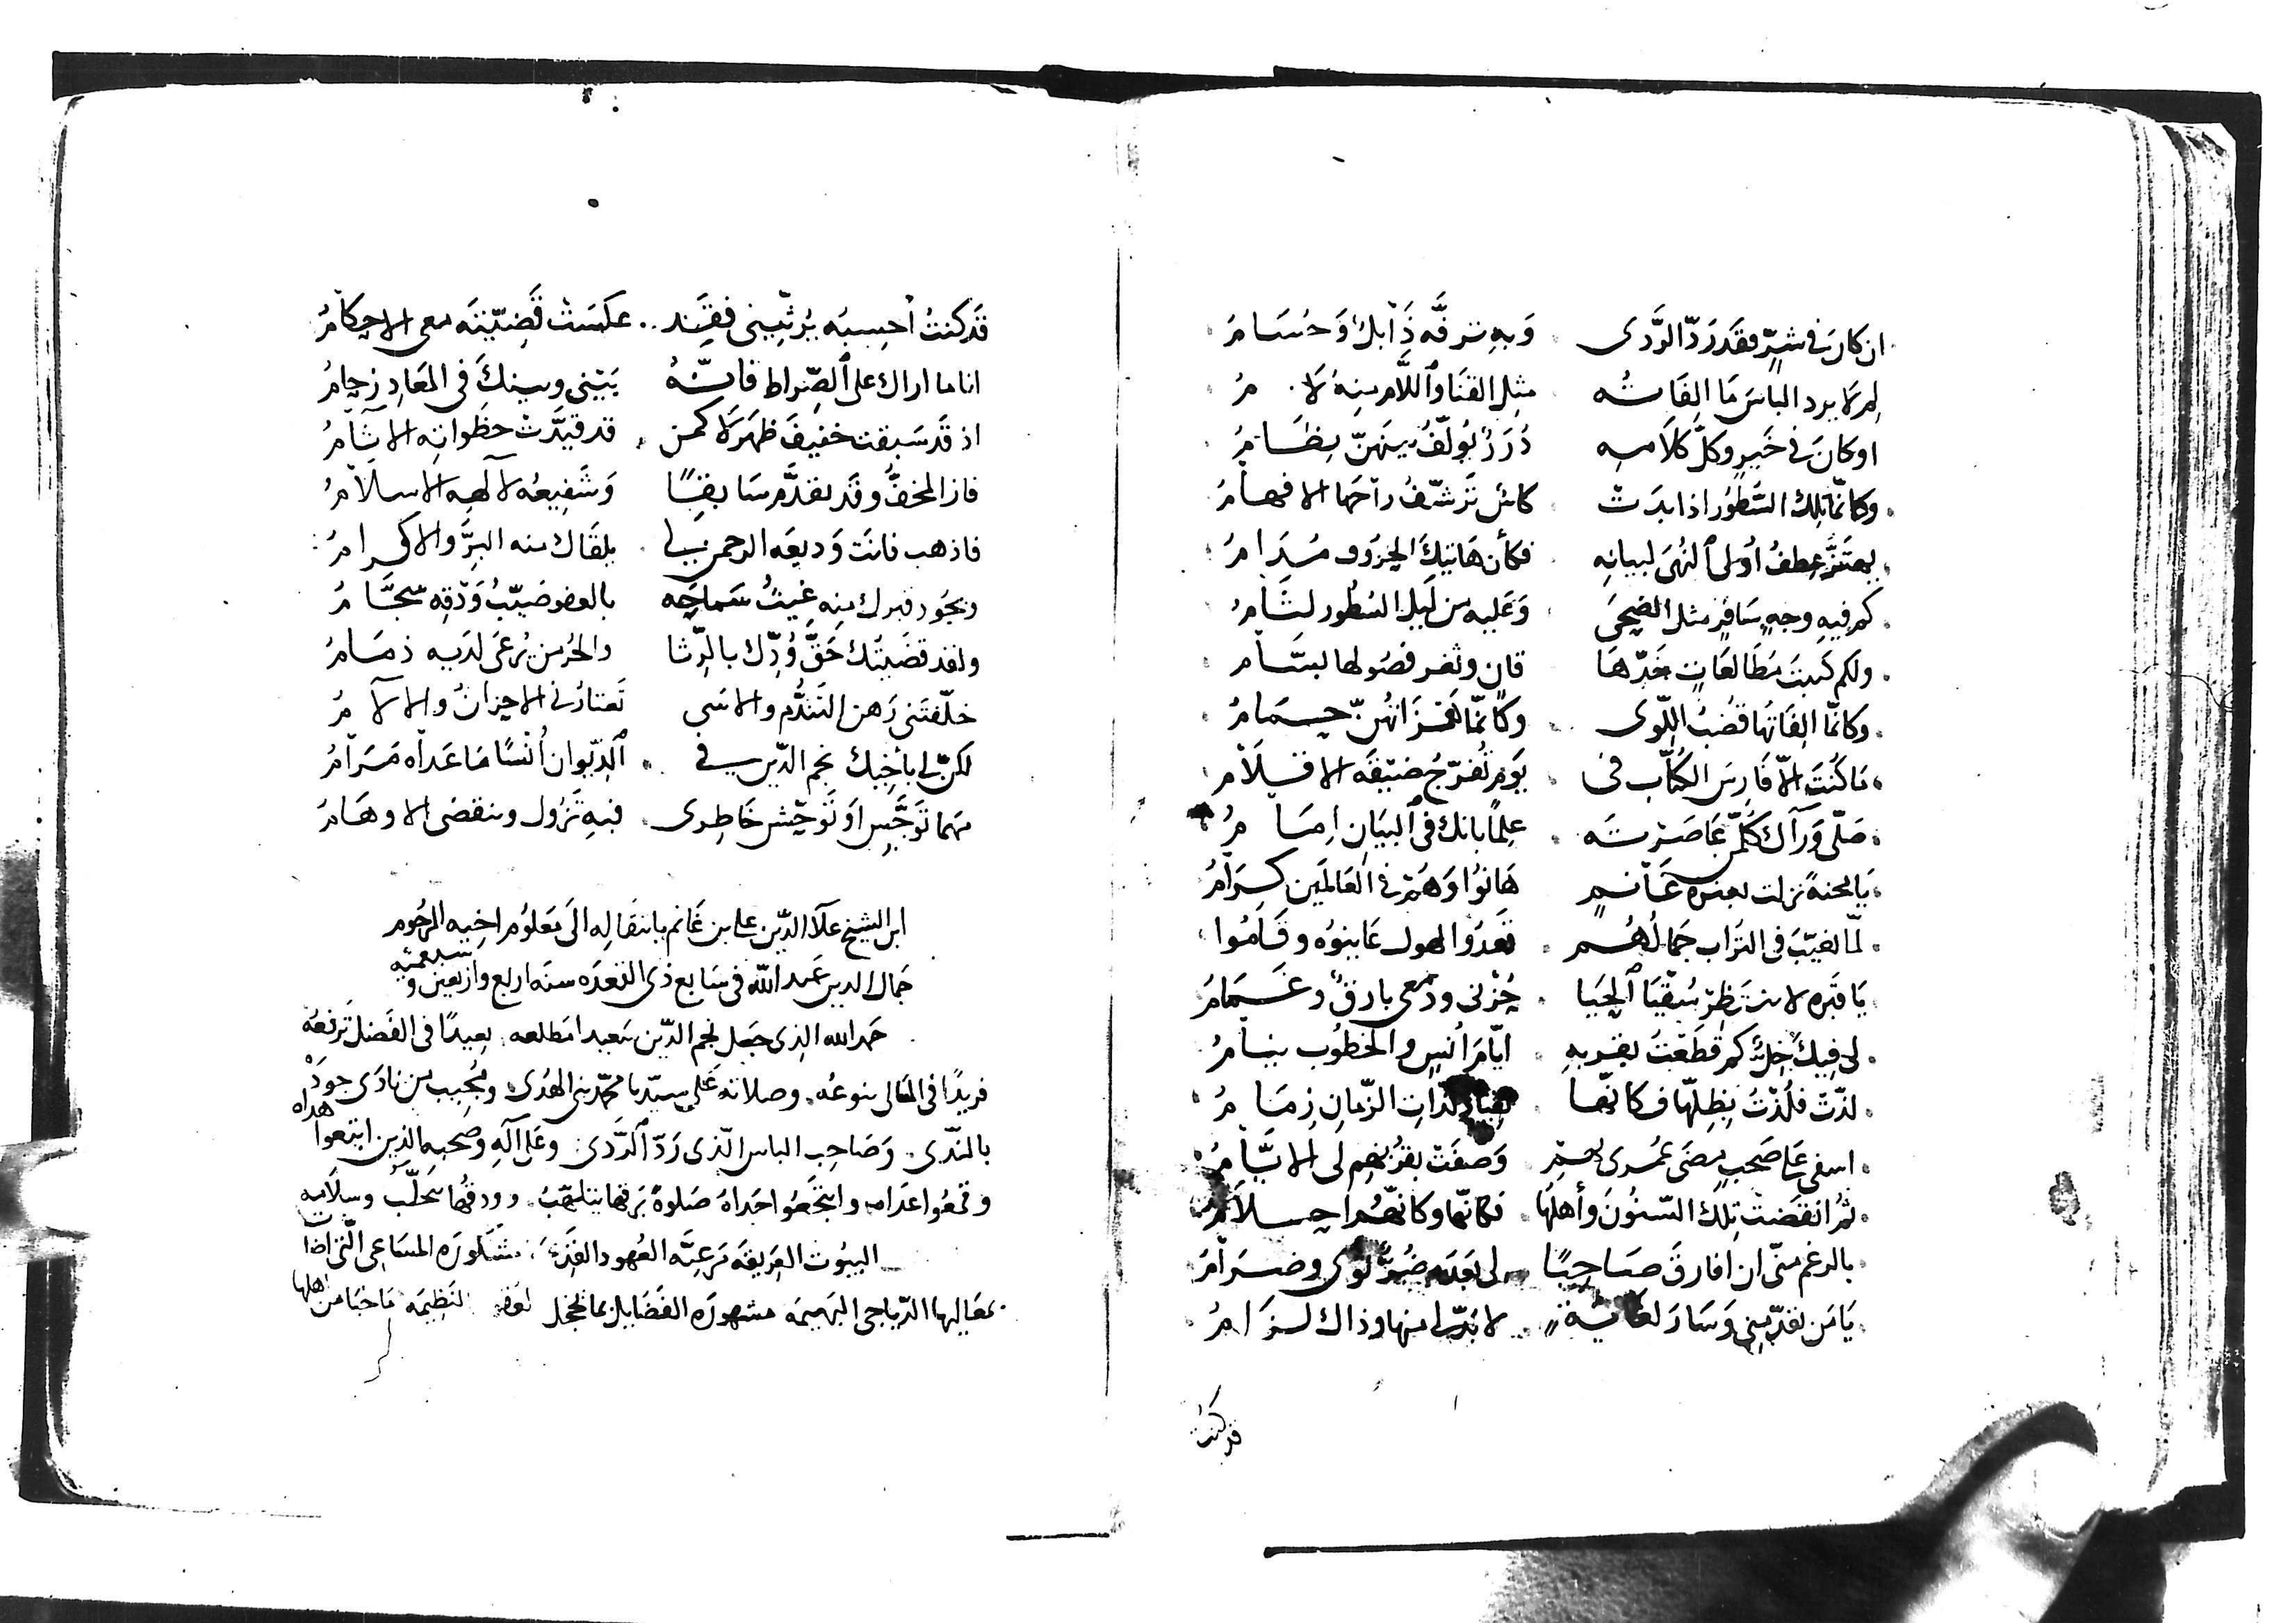 ان كان في شرّ فقد ردّ الرّدى وبه ترفّه ذابل وحسام
لم لا يرد الباس ما الفاته مثل القنا واللام منه لام
او كان في خير وكلّ كلامه درر يولّف بينهنّ نظام
وكانّما تلك السّطور اذا بدت كاس ترشّف راحها الافهام
يهتزّ عطف اولى النّهى لبيانه فكأن هاتيك الحروف مدام
كم فيه وجه سافر مثل الضحى وعليه من ليل السّطور لثام
ولكم كتبت مطالعات خدّها قان وثغر فصولها بسّام
وكانّما الفاتها قضب اللّوى وكانّما همزاتهنّ حمام
ما كنت الّا فارس الكتّاب في يوم تفرّج ضيقه الاقلام
صلّى ورآك كلّ من عاصرته علما بانك في البيان امام
يا محنة نزلت بعترة غانم هانوا وهم في العالمين كرام
لمّا تغيّب في التراب جمالهم قعدوا لهول عاينوه وقاموا
يا قبره لا تنتظر سقيا الحيا حزني ودمعي بارق وغمام
لي فيك خلّ كم قطعت بقربه ايّام انس والخطوب نيام
لذّت فلذت بظلّها فكانّها لذّات الزّمان زمام
اسفي على صحب مضى عمري بهم وصفت بقربهم لي الايّام
ثم انقضت تلك السّنون وأهلها فكانّها وكانّهم احلام
بالرغم منّي ان افارق صاحبا لي بعده ضرّ ثوى وضرام
يا من تقدّمني وسار لغاية لا بدّ لي منها وذاك لزام
قد كنت
قد كنت أحسبه يرثّيني فقد عكست قضيّته معي الاحكام
انا ما اراك على الصّراط فانّه بيني وبينك في المعاد زحام
اذ قد سبقت خفيف ظهر لا كمن قد قيّدت خطواته الآثام
فاز المخفّ وقد تقدّم سابقا وشفيعه لآلهه الاسلام
فاذهب فانت وديعه الرحمن لي يلقاك منه البرّ والاكرام
ويجود قبرك منه غيث سماحه بالعفو صيّب ودقه سجّام
ولقد قضيتك حقّ ودّك بالرّثا والحرّ من يرعى لديه ذمام
خلّفتني رهن التندّم والاسى تعتادني الاحزان والآلام
لكنّ لي باخيك نجم الدّين في الدّيوان أنسا ما عداه مرام
مهما توجّس او توحّش خاطري فبه تزول وتنقضي الاوهام
ابن الشيخ علآ الدّين علي بن غانم بانتقاله الى معلوم اخيه المرحوم
جمال الدين عبد الله في سابع ذي القعده سنه اربع واربعين وسبعمئه
حمد الله الذي جعل نجم الدّين سعيدا مطلعه بعيدا في الفضل ترفعه
فريدا في المعالي تنوعه وصلاته على سيّدنا محمّد نبي الهدى ومجيب من نادى جوده
بالندى وصاحب الباس الّذي ردّ الرّدى وعلى آله وصحبه الذين اتبعوا هداه
وقمعوا عداه وانتجعوا جداه صلوة برقها يتلهّب وودقها يتحلّب وسلامه
البيوت العريقه مرعيّه العهود القديمه مشكوره المساعي الّتي اضا
بمعاليها الدّياجي البهيمه مشهوره الفضايل بما يخجل النظيمه ما خبا من اهلها